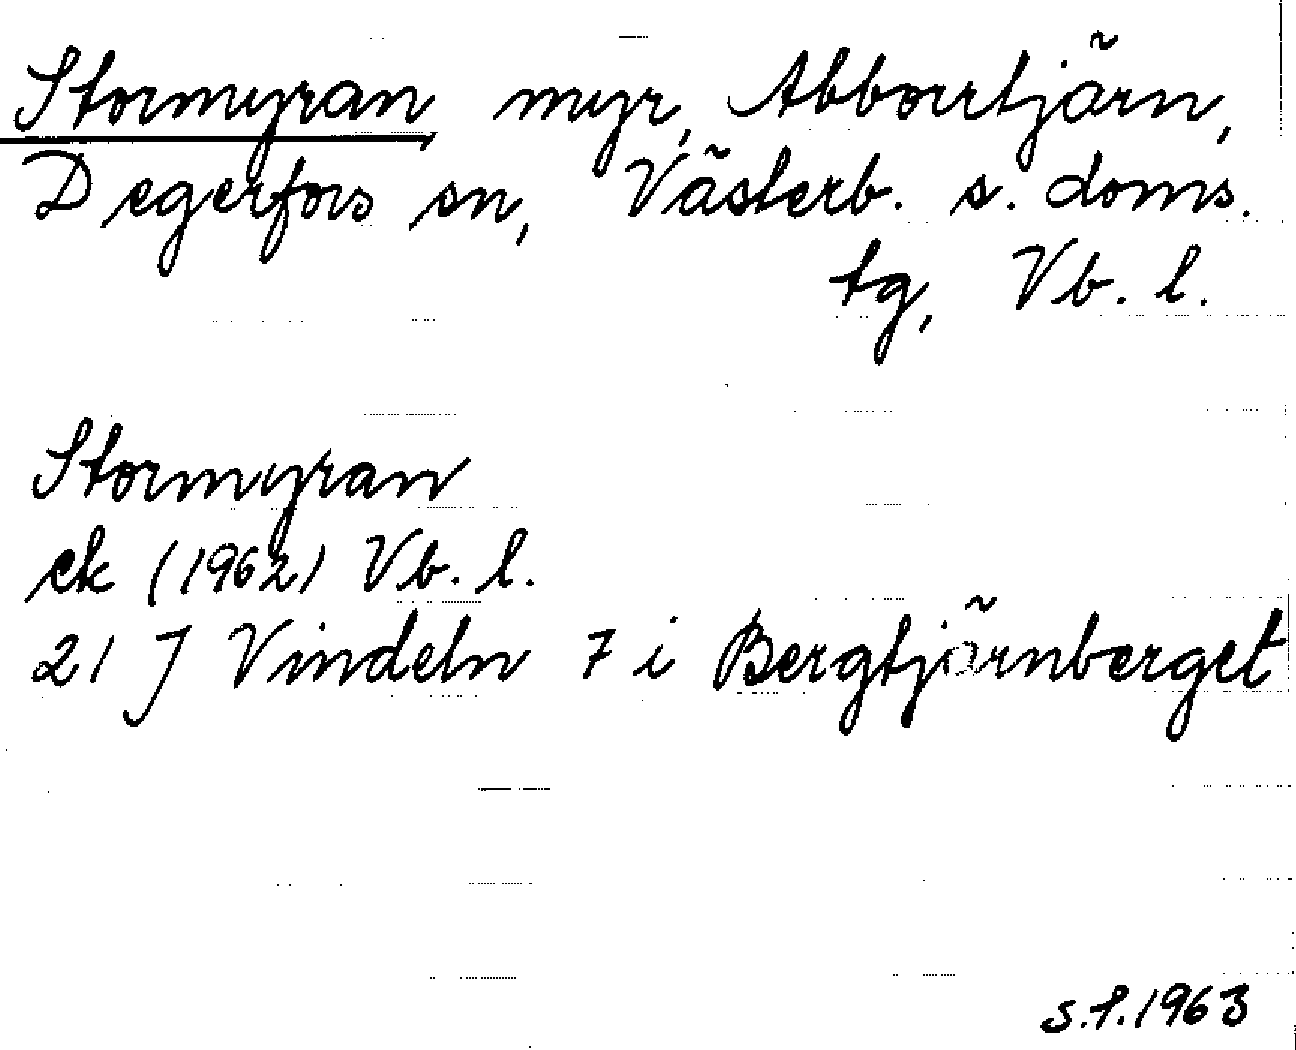 Stormyran myr, Abborrtjärn,
Degerfors sn, Västerb. s. doms.
tg, Vb. l.
Stormyran
ek (1962) Vb. l.
21 J Vindeln 7 i Bergtjärnberget
s.f. 1963